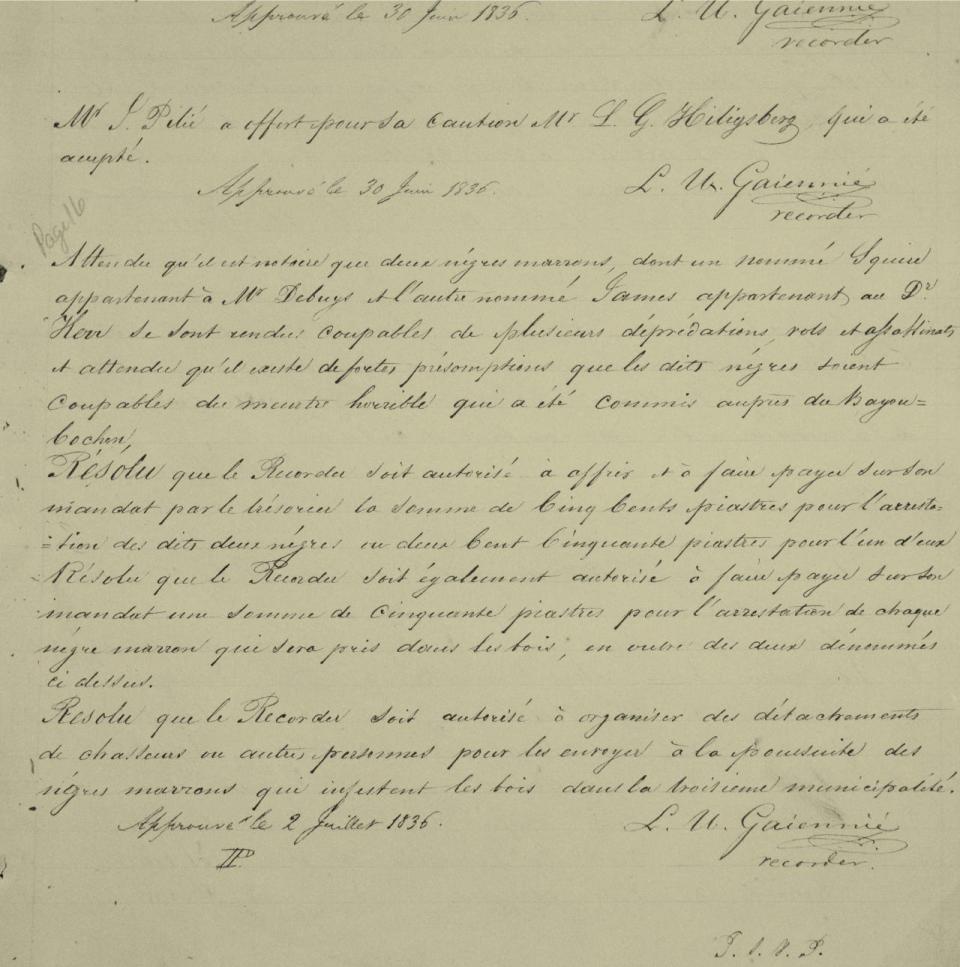 Approuvé le 30 Juin 1836. L. U. Gaiennié
recorder
Mr J. Pilié a offert pour sa caution Mr L. G. Hiligsberg, qui a été
accepté.
Approuvé le 30 Juin 1836. L. U. Gaiennié
recorder
Page 16
Attendu qu'il est notoire que deux nègres marrons, dont un nommé Squire
appartenant à Mr Debuys et l'autre nommé James appartenant au Dr.
Kerr se sont rendus coupables de plusieurs déprédations, vols et assassinats,
et attendu qu'il existe de fortes présomptions que les dits nègres soient
coupables du meurtre horrible qui a été commis auprès du Bayou=
Cochon,
Résolu que le Recorder soit autorisé à offrir et à faire payer sur son
mandat par le trésorier la somme de Cinq Cents piastres pour l'arresta=
=tion des dits deux nègres ou deux Cent Cinquante piastres pour l'un d'eux
Résolu que le Recorder soit également autorisé à faire payer sur son
mandat une somme de cinquante piastres pour l'arrestation de chaque
nègre marron qui sera pris dans les bois, en outre des deux dénommés
ci dessus.
Resolu que le Recorder soit autorisé à organiser des détachements
de chasseurs ou autres personnes pour les envoyer à la poursuite des
nègres marrons qui infestent les bois dans la troisieme municipalité.
Approuvé le 2 Juillet 1836. L. U. Gaiennié
recorder.